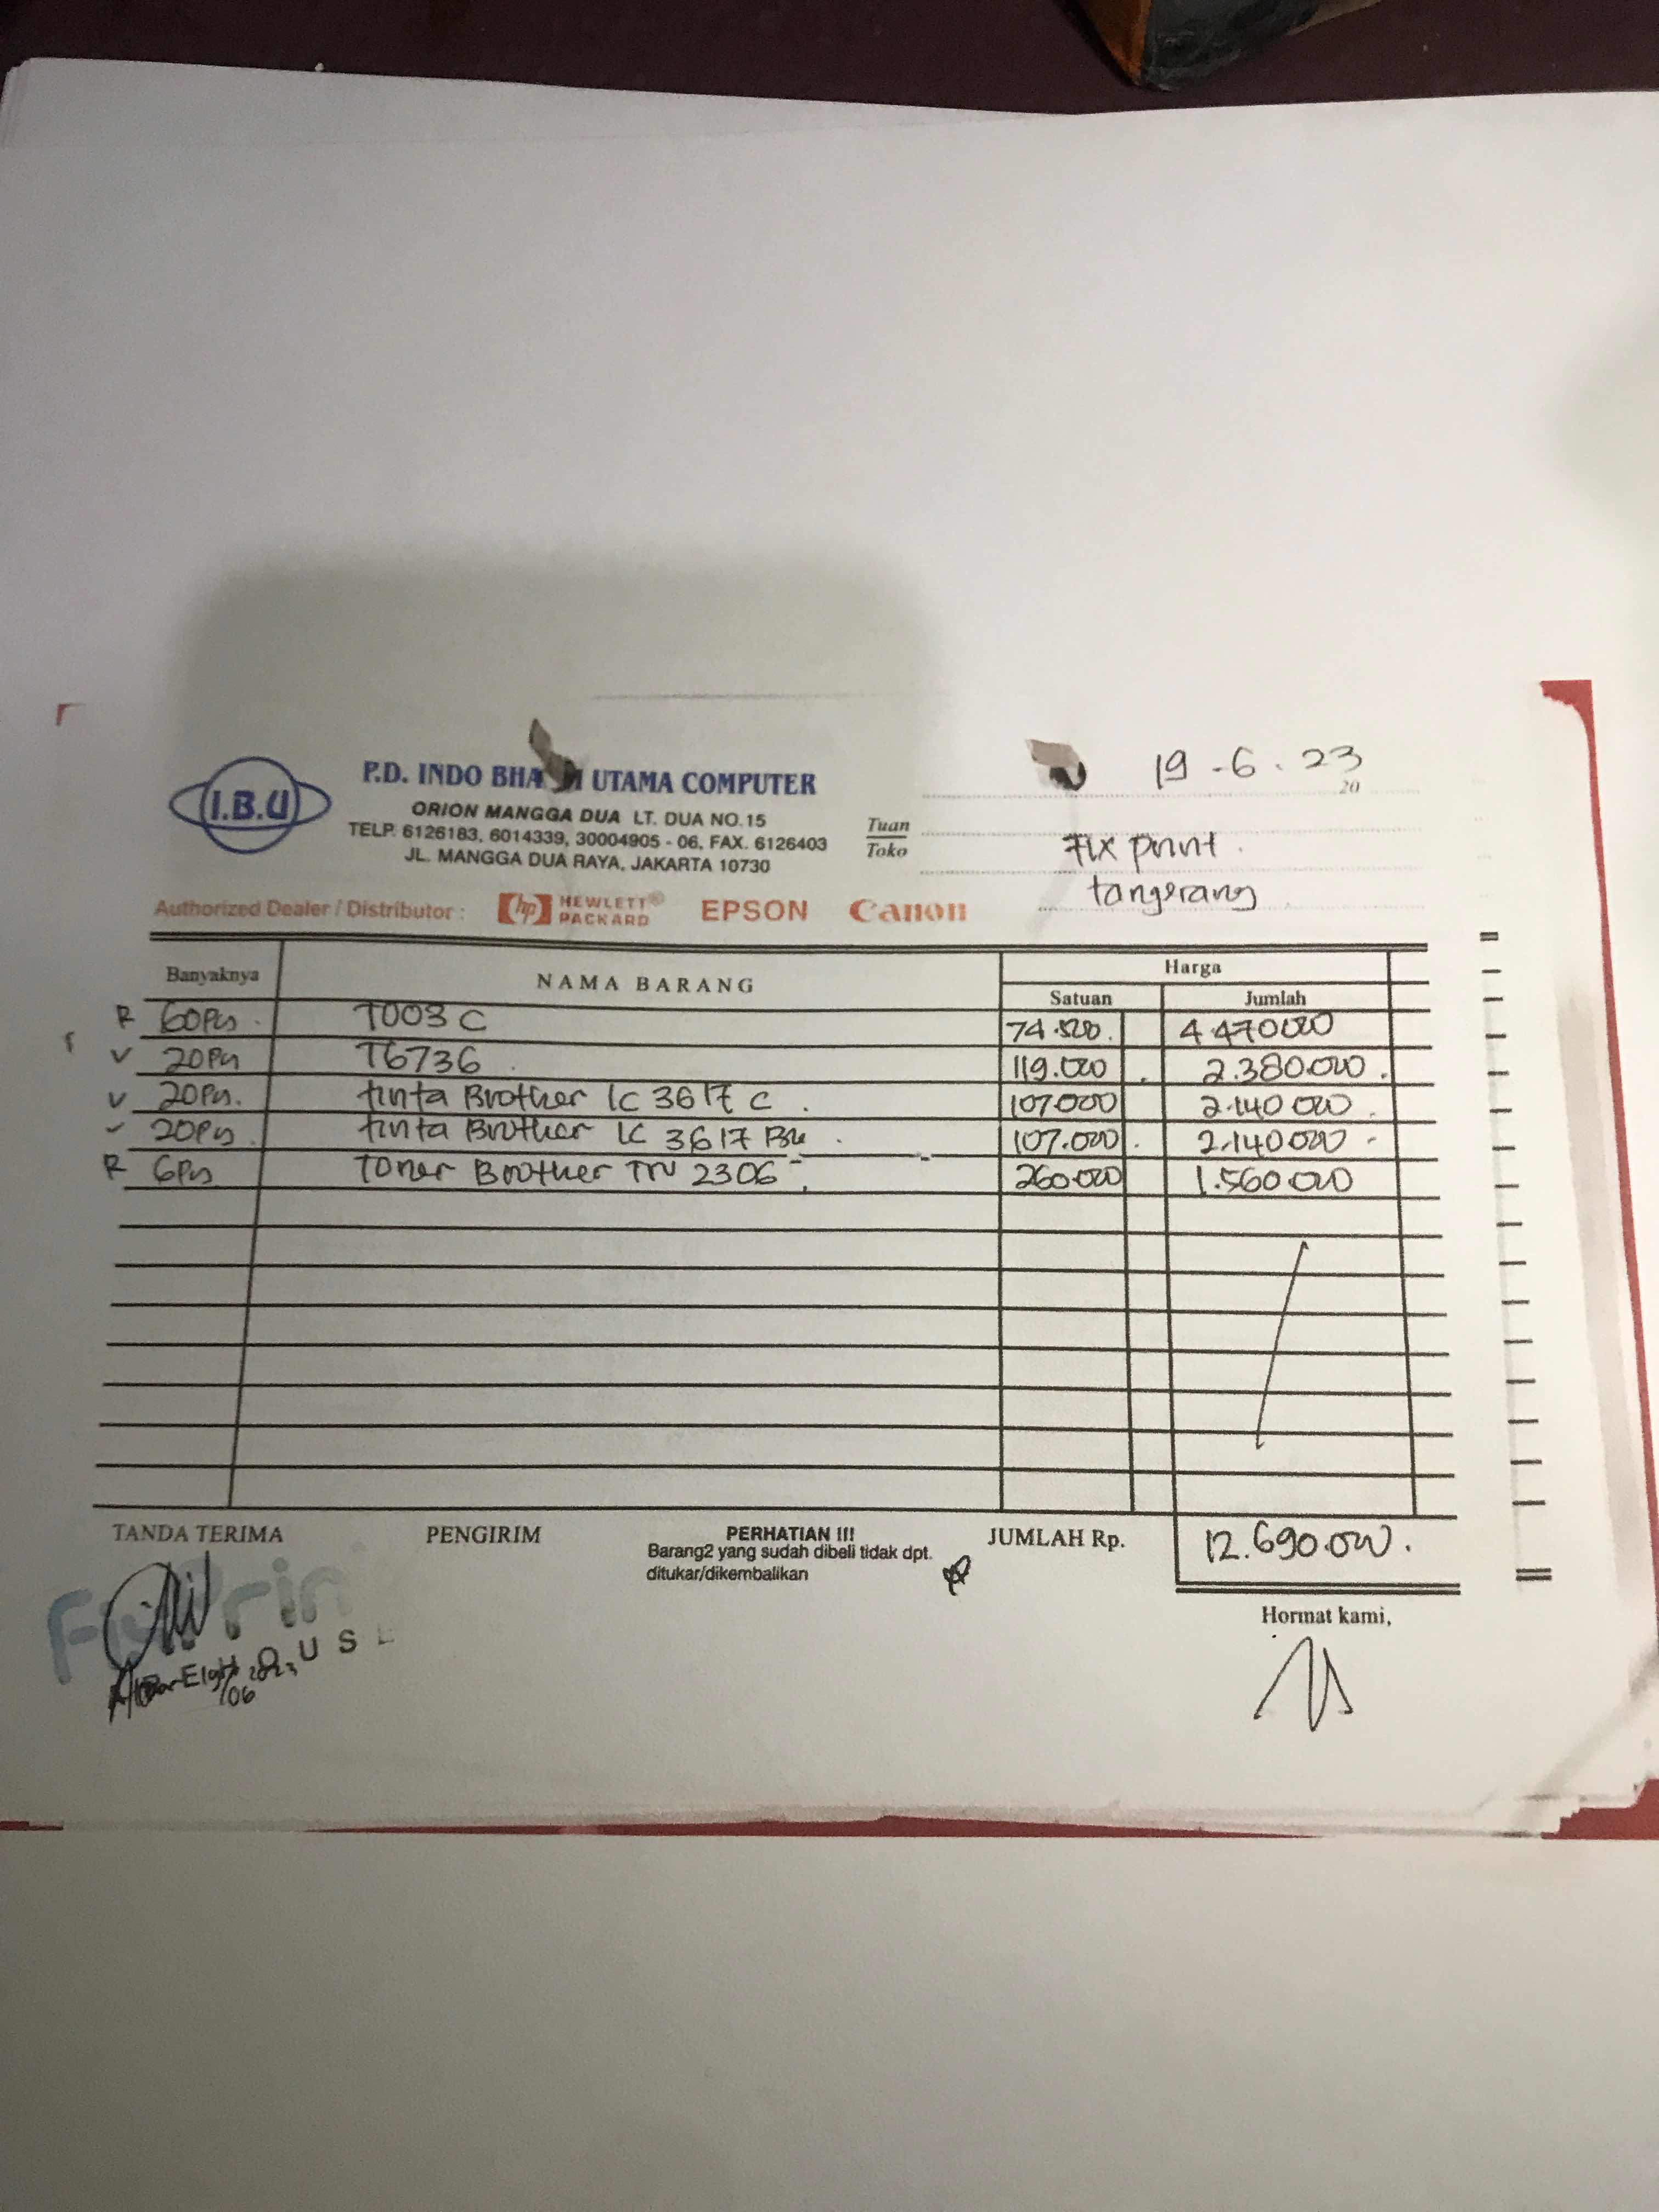 I.B.U
P.D. INDO BHA UTAMA COMPUTER
ORION MANGGA DUA LT. DUA NO.15
TELP. 6126183, 6014339, 30004905 - 06, FAX. 6126403
JL. MANGGA DUA RAYA, JAKARTA 10730
19 - 6 . 23
20
Tuan
Toko
Fix print.
tangerang
Authorized Dealer / Distributor : hp HEWLETT® PACKARD EPSON Canon
Banyaknya NAMA BARANG Harga
Satuan Jumlah
R 60Pcs. T003 C 74.500. 4.470.000
V 20Pcs T6736 119.000 2.380.000.
V 20Pcs. tinta Brother LC 3617 C. 107.000 2.140.000.
20Pcs. tinta Brother LC 3617 Bk. 107.000. 2.140.000
R 6Pcs Toner Brother TN 2306 260.000 1.560.000
TANDA TERIMA PENGIRIM PERHATIAN !!! JUMLAH Rp. 12.690.000.
Barang2 yang sudah dibeli tidak dpt.
ditukar/dikembalikan
Hormat kami,